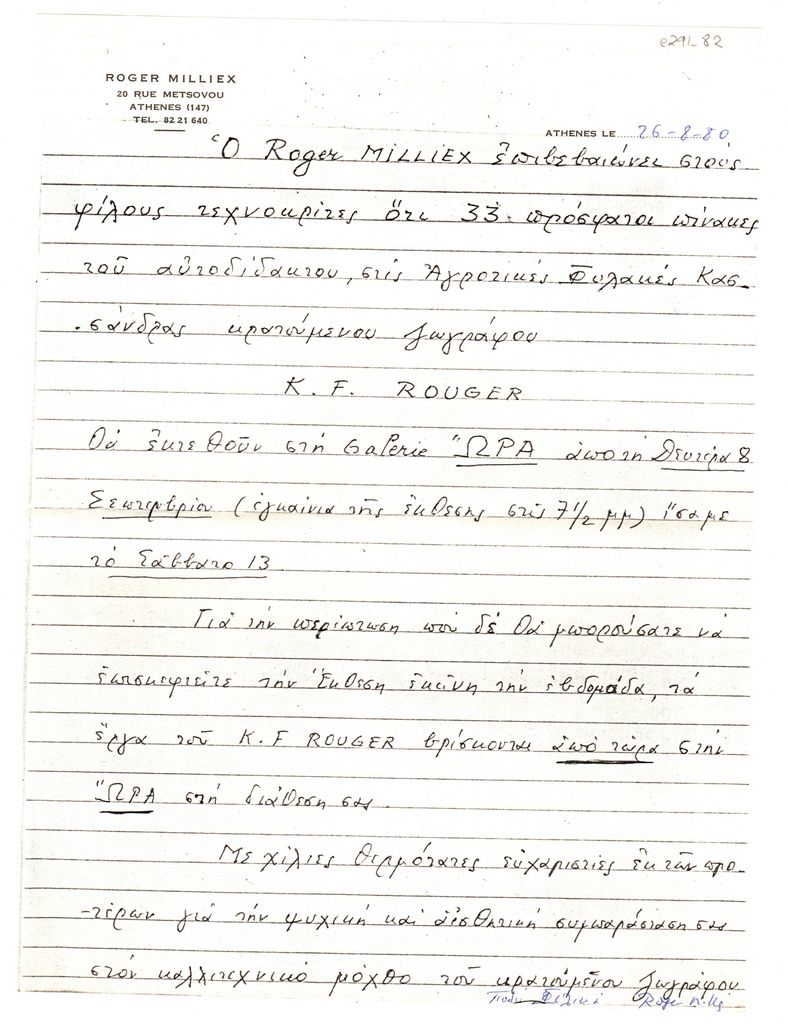 e291_82
ROGER MILLIEX
20 RUE METSOVOU
ATHENES (147)
TEL. 82 21 640
ATHENES LE 26-8-80
Ὁ Roger MILLIEX ἐπιβεβαιώνει στούς
φίλους τεχνοκρίτες ὅτι 33 πρόσφατοι πίνακες
τοῦ αὐτοδίδακτου, στίς Ἀγροτικές Φυλακές Κασ-
-σάνδρας κρατούμενου ζωγράφου
K. F. ROUGER
θά ἐκτεθοῦν στή Galerie "ΩΡΑ ἀπό τή Δευτέρα 8
Σεπτεμβρίου (ἐγκαίνια τῆς ἔκθεσης στίς 7 1/2 μμ) ἴσαμε
τό Σάββατο 13
Γιά τήν περίπτωση πού δέ θά μπορούσατε νά
ἐπισκεφτεῖτε τήν Ἔκθεση ἐκείνη τήν ἑβδομάδα, τά
ἔργα τοῦ K. F ROUGER βρίσκονται ἀπό τώρα στήν
"ΩΡΑ στή διάθεση σας.
Με χίλιες θερμότατες εὐχαριστίες ἐκ τῶν προ-
-τέρων γιά τήν ψυχική καί αἰσθητική συμπαράσταση σας
στόν καλλιτεχνικό μόχθο τοῦ κρατούμενου ζωγράφου
Φιλικά